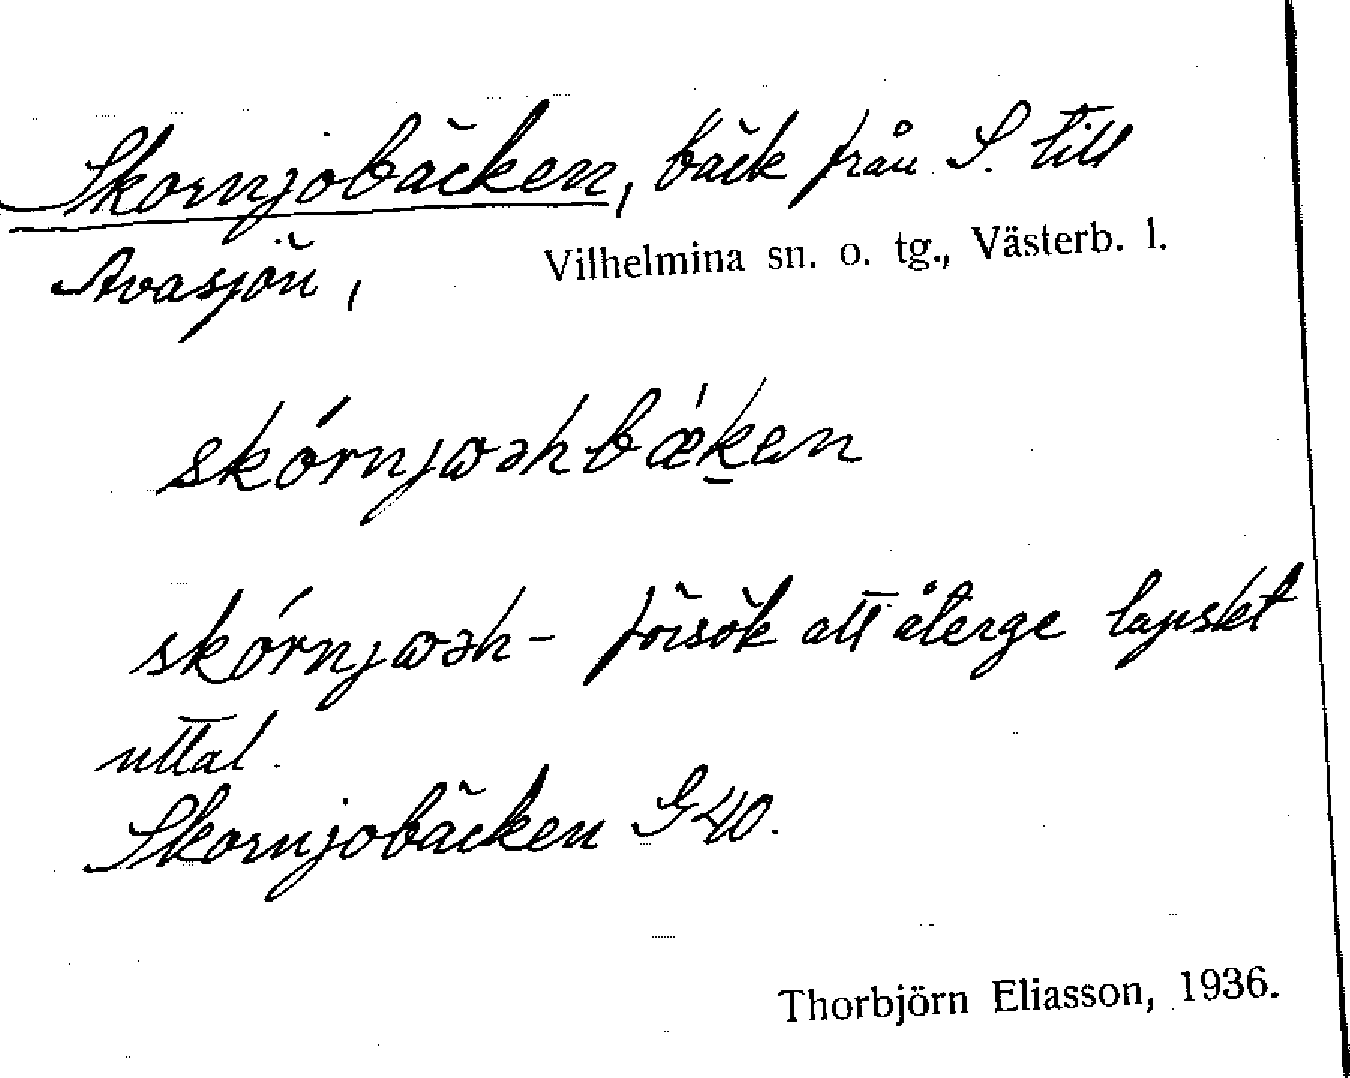 Skornjobäcken, bäck från S. till
Avasjön,
Vilhelmina sn. o. tg., Västerb. l.
skórnjωəhbǽk̠en
skórnjωəh- försök att återge lapskt
uttal.
Skornjobäcken G40.
Thorbjörn Eliasson, 1936.